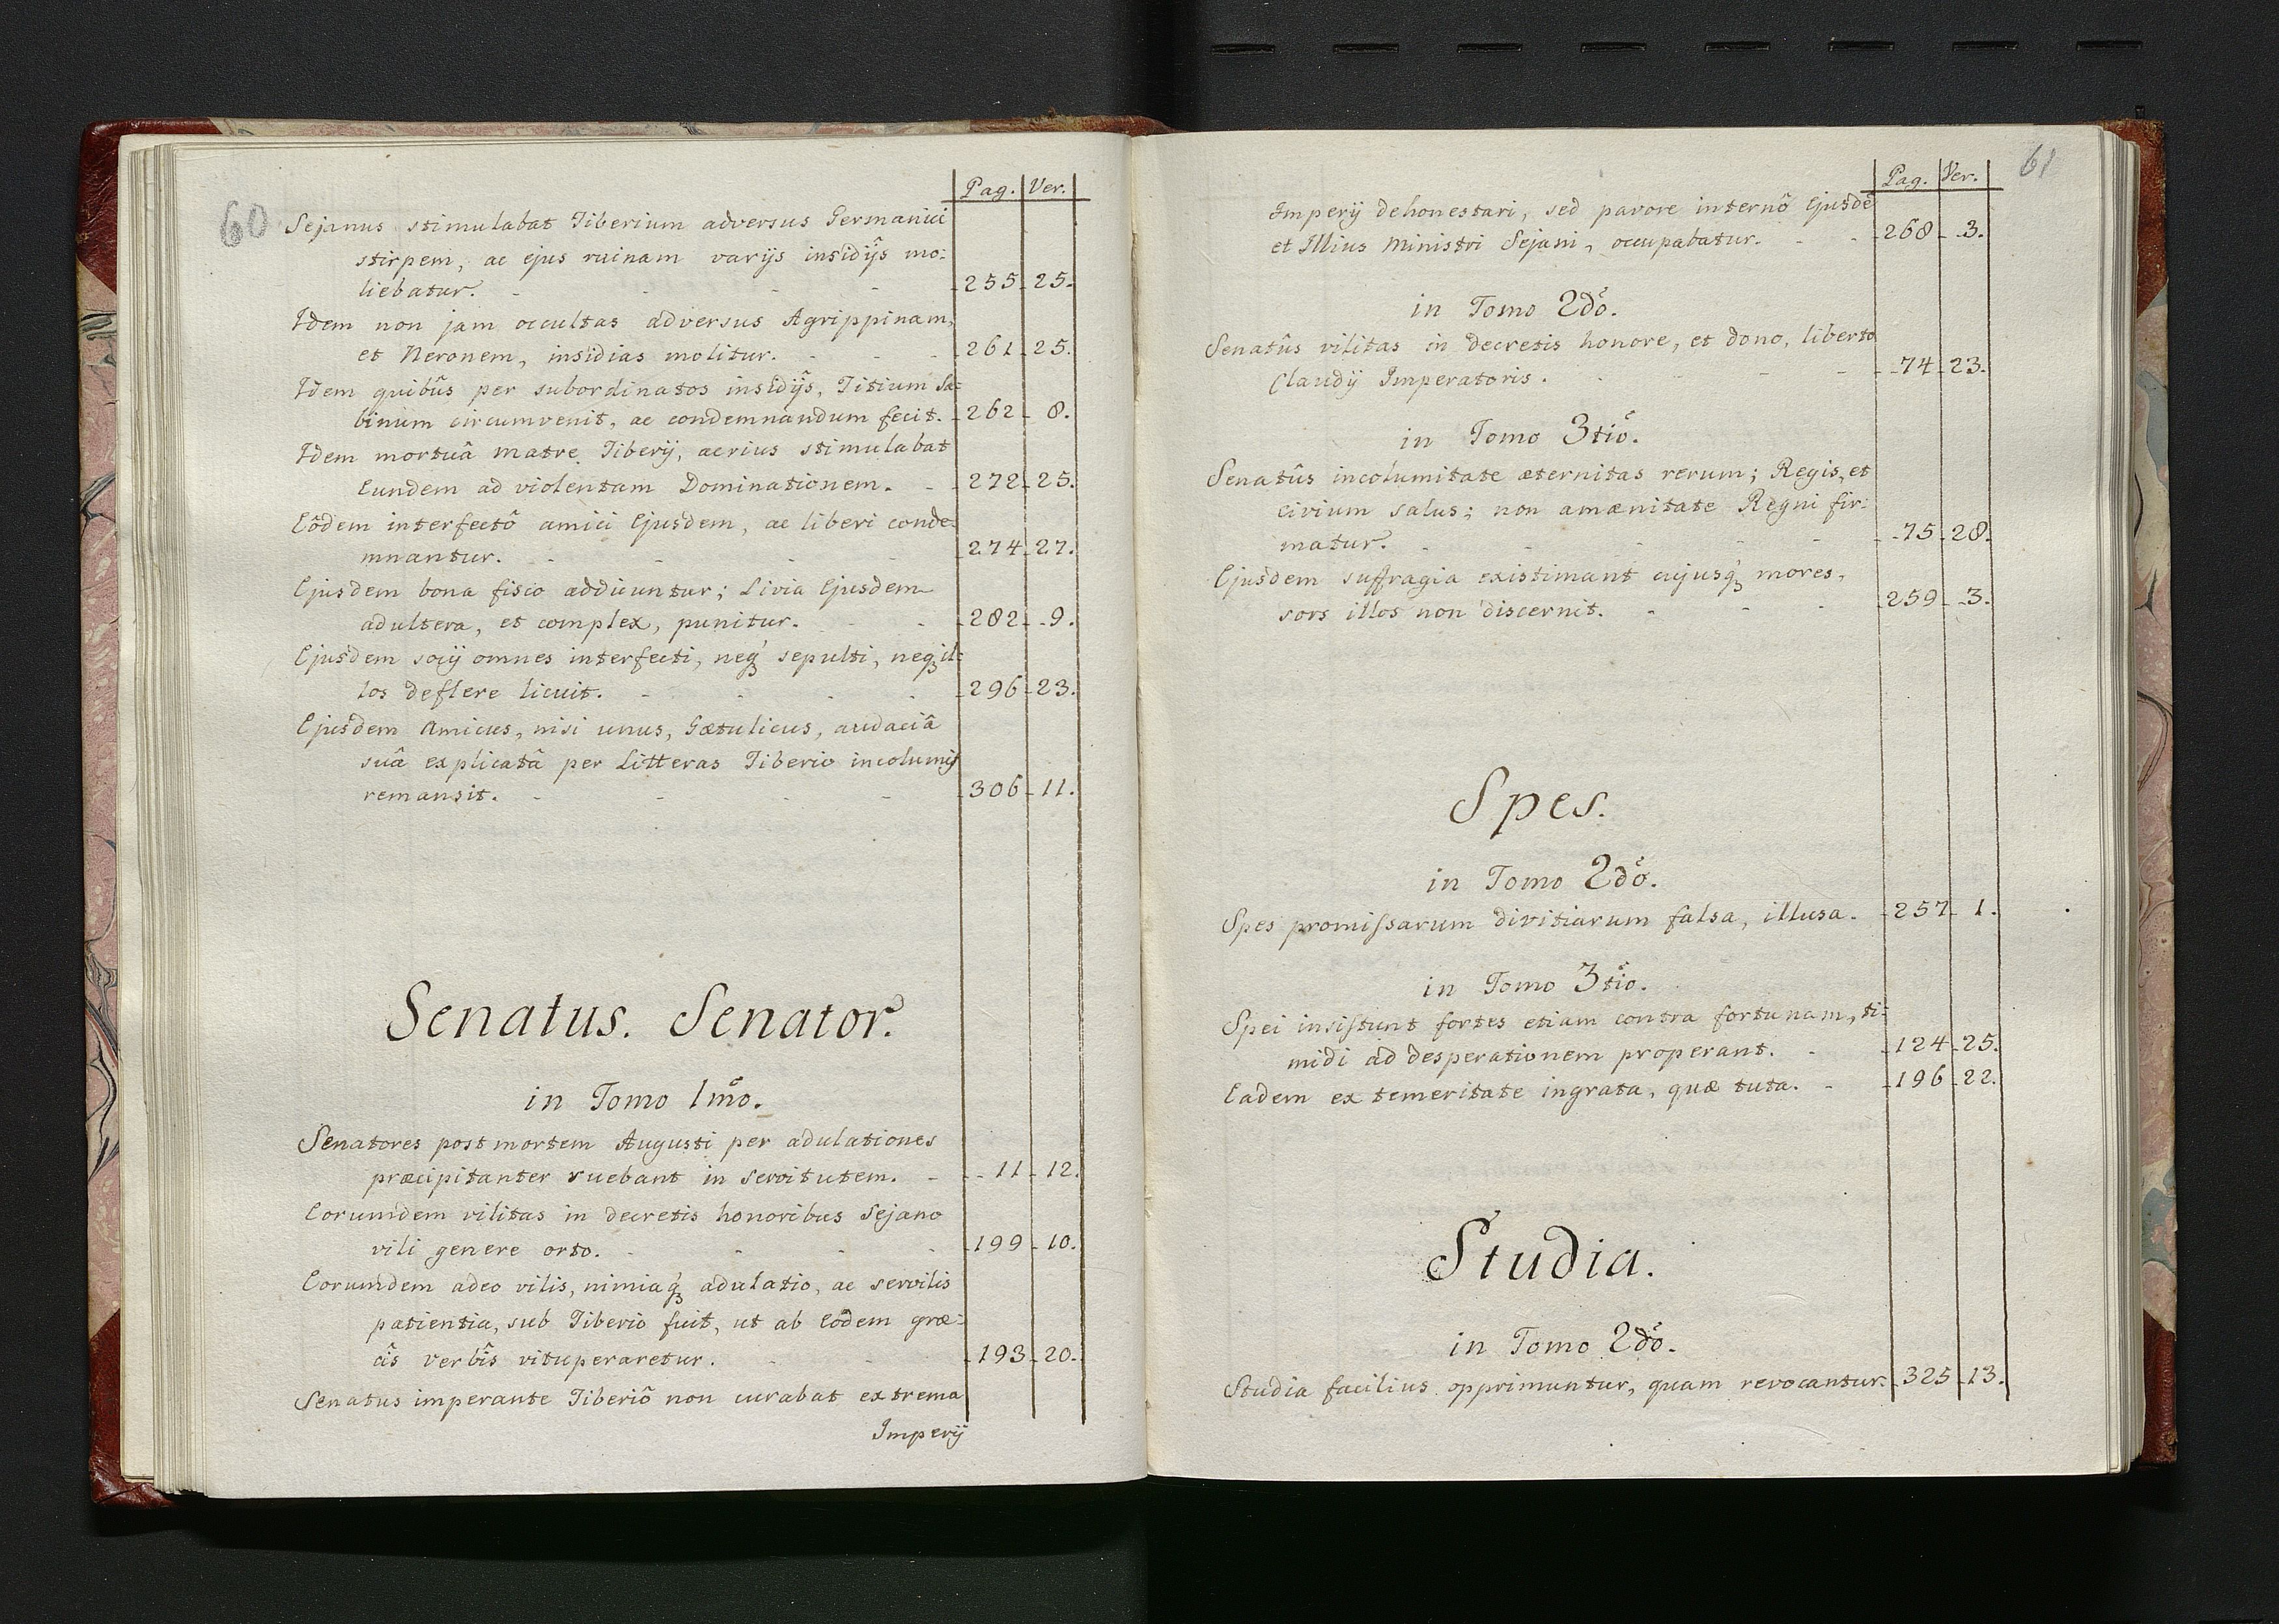 60
Pag. Ver.
Sejanus stimulabat Tiberium adversus Germanici
stirpem, ac ejus ruinam varijs insidijs mo:
liebatur. - 255 - 25.
Idem non jam occultas adversus Agrippinam,
et Neronem, insidias molitur. - 261 - 25.
Idem quibûs per subordinatos insidijs, Titium Sa:
binum circumvenit, ac condemnandum fecit. - 262 - 8.
Idem mortuâ matre Tiberij, acrius stimulabat
Eundem ad violentam Dominationem. - 272 - 25.
Eôdem interfectô amici Ejusdem, ac liberi conde:
mnantur. - 274 - 27.
Ejusdem bona fisco addicuntur; Livia Ejusdem
adultera, et complex, punitur. - 282 - 9.
Ejusdem socij omnes interfecti, neqꝫ sepulti, neqꝫ il:
los deflere licuit. - 296 - 23.
Ejusdem Amicus, nisi unus, Gætulicus, audaciâ
suâ explicatâ per Litteras Tiberio incolumis
remansit. - 306 - 11.
Senatus. Senator.
in Tomo 1mo.
Senatores post mortem Augusti per adulationes
præcipitanter ruebant in servitutem. - 11 - 12.
Eorumdem vilitas in decretis honoribus Sejano
vili genere orto. - 199 - 10.
Eorumdem adeo vilis, nimiaqꝫ adulatio, ac servilis
patientia, sub Tiberio fuit, ut ab Eôdem græ:
cîs verbîs vituperaretur. - 193 - 20.
Senatus imperante Tiberiô non curabat extrema
Imperij
61
Pag. Ver.
Imperij dehonestari, sed pavore internô Ejusdē
et Illius Ministri Sejani, occupabatur. - 268 - 3.
in Tomo 2dô.
Senatûs vilitas in decretis honore, et dono, liberto
Claudij Imperatoris. - 74 - 23.
in Tomo 3tiô.
Senatûs incolumitate æternitas rerum; Regis, et
civium salus; non amænitate Regni fir:
matur. - 75 - 28.
Ejusdem suffragia existimant cujusqꝫ mores,
sors illos non discernit. - 259 - 3.
Spes.
in Tomo 2dô.
Spes promissarum divitiarum falsa, illusa. - 257 - 1.
in Tomo 3tiô.
Spei insistunt fortes etiam contra fortunam, ti:
midi ad desperationem properant. - 124 - 25.
Eadem ex temeritate ingrata, quæ tuta. - 196 - 22.
Studia.
in Tomo 2dô.
Studia facilius opprimuntur, quam revocantur. - 325 - 13.